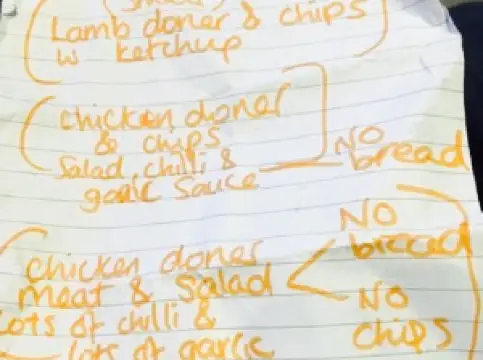 Lamb doner & chips
w ketchup
chicken doner
& chips
Salad, chilli &
garlic sauce
NO
bread
chicken doner
meat & salad
NO
bread
NO
chips
Lots of chilli &
lots of garlic